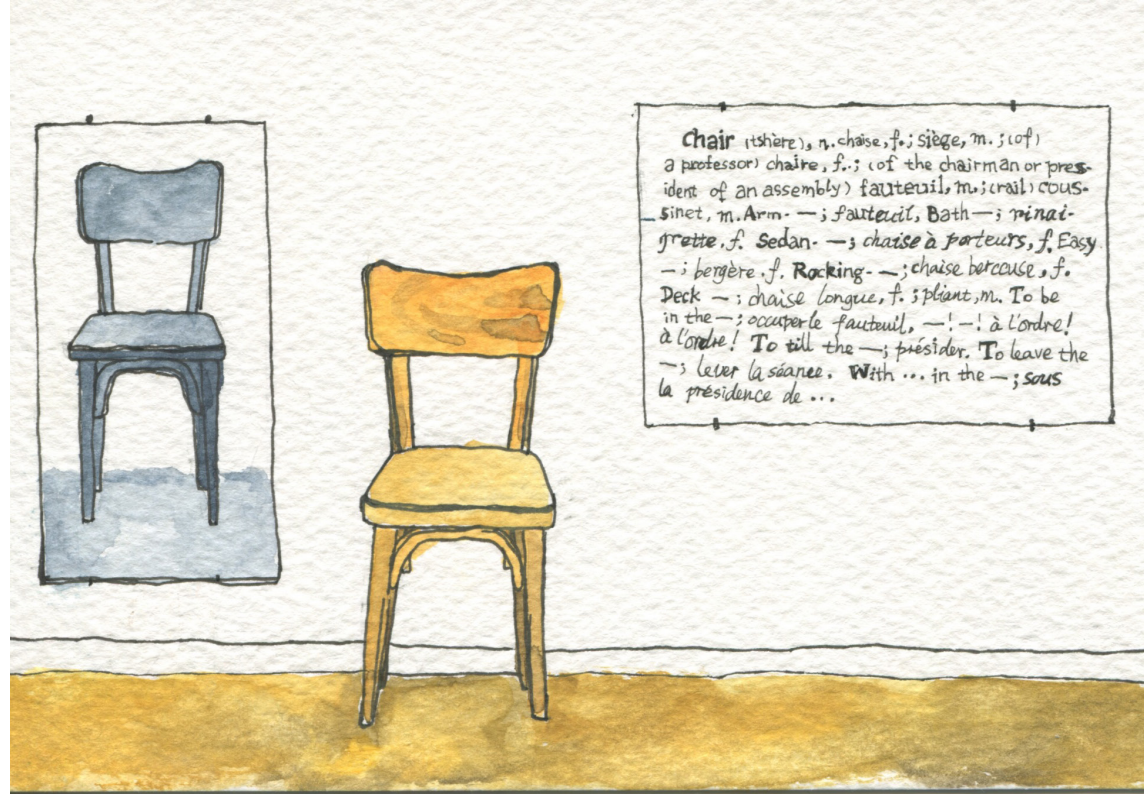 Chair (tshère), n. chaise, f.; siège, m.; (of)
a professor) chaire, f.; (of the chairman or pres-
ident of an assembly) fauteuil, m.; (rail) cous-
sinet, m. Arm- —; fauteuil, Bath —; vinai-
grette, f. Sedan- —; chaise à porteurs, f. Easy
—; bergère. f. Rocking- —; chaise berceuse, f.
Deck —; chaise longue, f.; pliant, m. To be
in the —; occuper le fauteuil, —! —! à l'ordre!
à l'ordre! To till the —; présider. To leave the
—; lever la séance. With ... in the —; sous
la présidence de ...